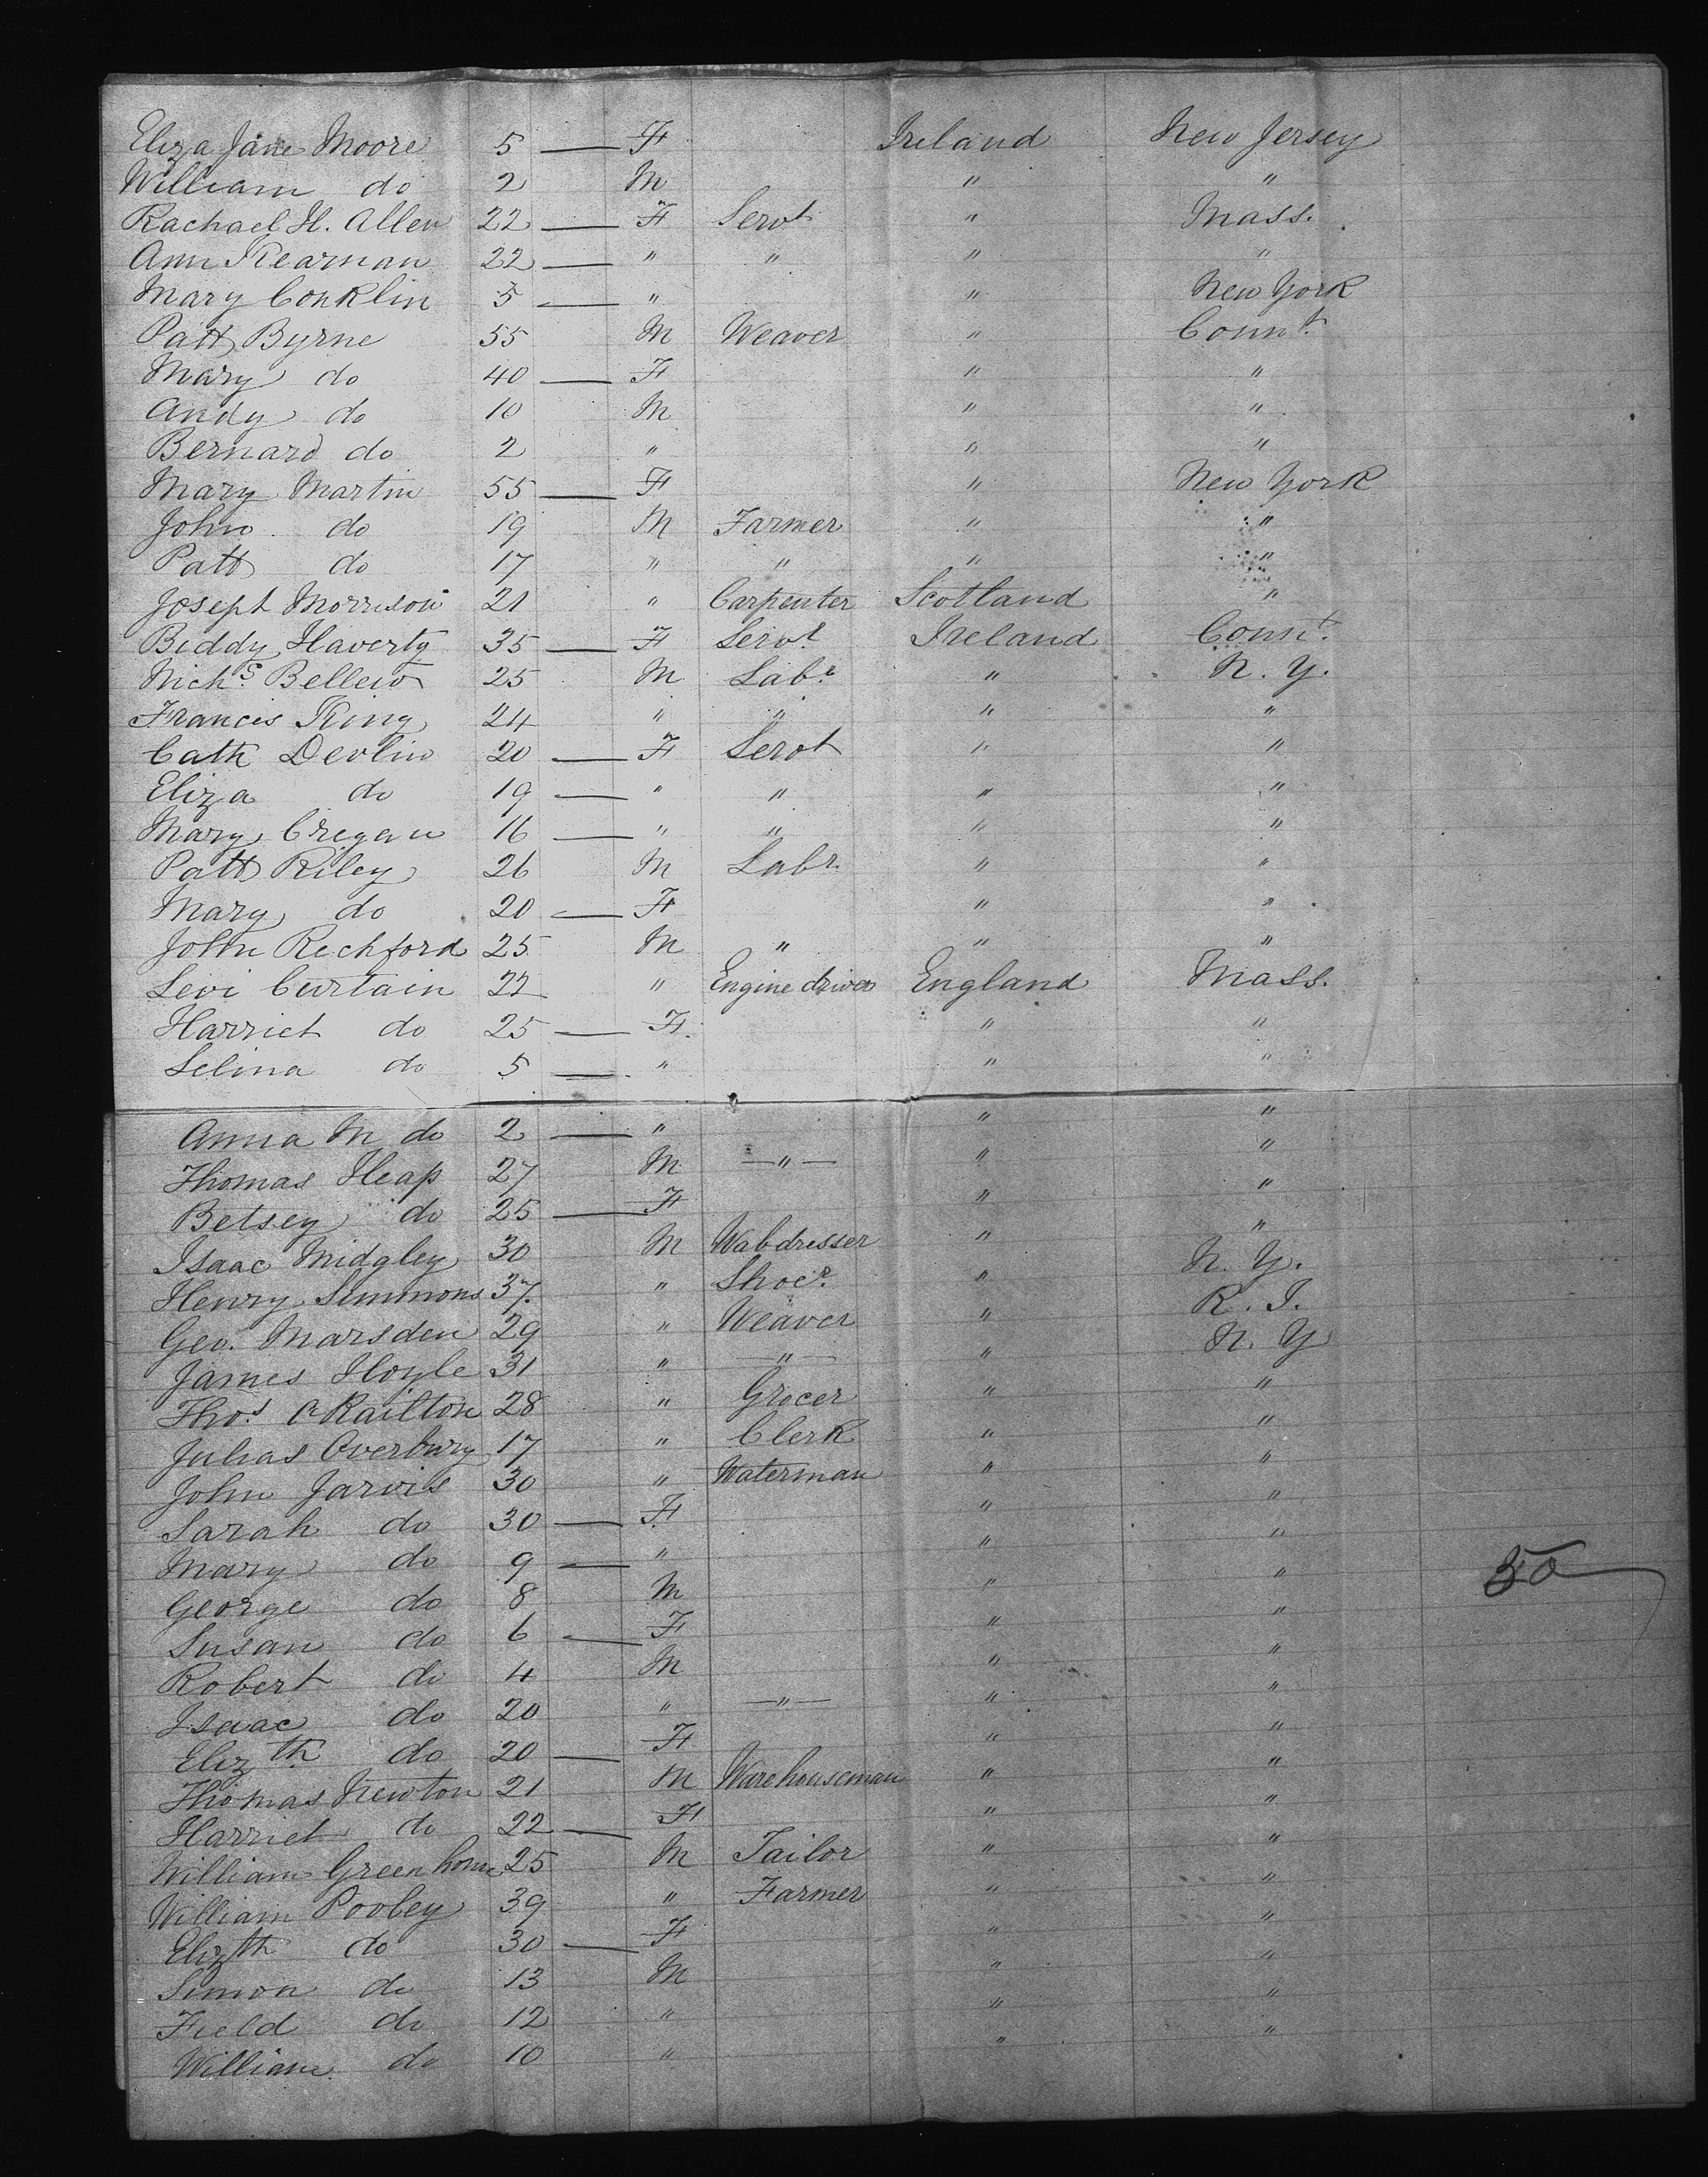 Eliza Jane Moore 5 — F Ireland New Jersey
William do 2 M " "
Rachael H. Allen 22 — F Servt " Mass.
Ann Kearnan 22 — " " " "
Mary Conklin 5 — " " New York
Patt Byrne 55 M Weaver " Connt.
Mary do 40 — F " "
Andy do 10 M " "
Bernard do 2 " " "
Mary Martin 55 — F " New York
John do 19 M Farmer " "
Patt do 17 " " " "
Joseph Morrison 21 " Carpenter Scotland "
Biddy Haverty 35 — F Servt. Ireland Connt.
Nichs. Bellew 25 M Labr. " N. Y.
Francis King 24 " " " "
Cath Devlin 20 — F Servt " "
Eliza do 19 — " " " "
Mary Cregan 16 — " " " "
Patt Riley 26 M Labr. " "
Mary do 20 — F " "
John Rechford 25 M " " "
Levi Curtain 22 " Engine driver England Mass.
Harriet do 25 — F. " "
Selina do 5 — " " "
Anna M do 2 — " " "
Thomas Heap 27 M —"— " "
Betsey do 25 — F " "
Isaac Midgley 30 M Wabdresser " "
Henry Simmons 37. " Shoer. " N. Y.
Geo. Marsden 29 " Weaver " R. I.
James Hoyle 31 " —"— " N. Y
Thos. Railton 28 " Grocer " "
Julias Overbury 17 " Clerk " "
John Jarvis 30 " Waterman " "
Sarah do 30 — F. " "
Mary do 9 — " " "
George do 8 M " " 50
Susan do 6 — F " "
Robert do 4 M " "
Isaac do 20 " —"— " "
Elizth. do 20 — F " "
Thomas Newton 21 M Warehouseman " "
Harriet do 22 — F " "
William Greenhom 25 M Tailor " "
William Pooley 39 " Farmer " "
Elizth do 30 — F " "
Simon do 13 M " "
Field do 12 " " "
William do 10 " " "